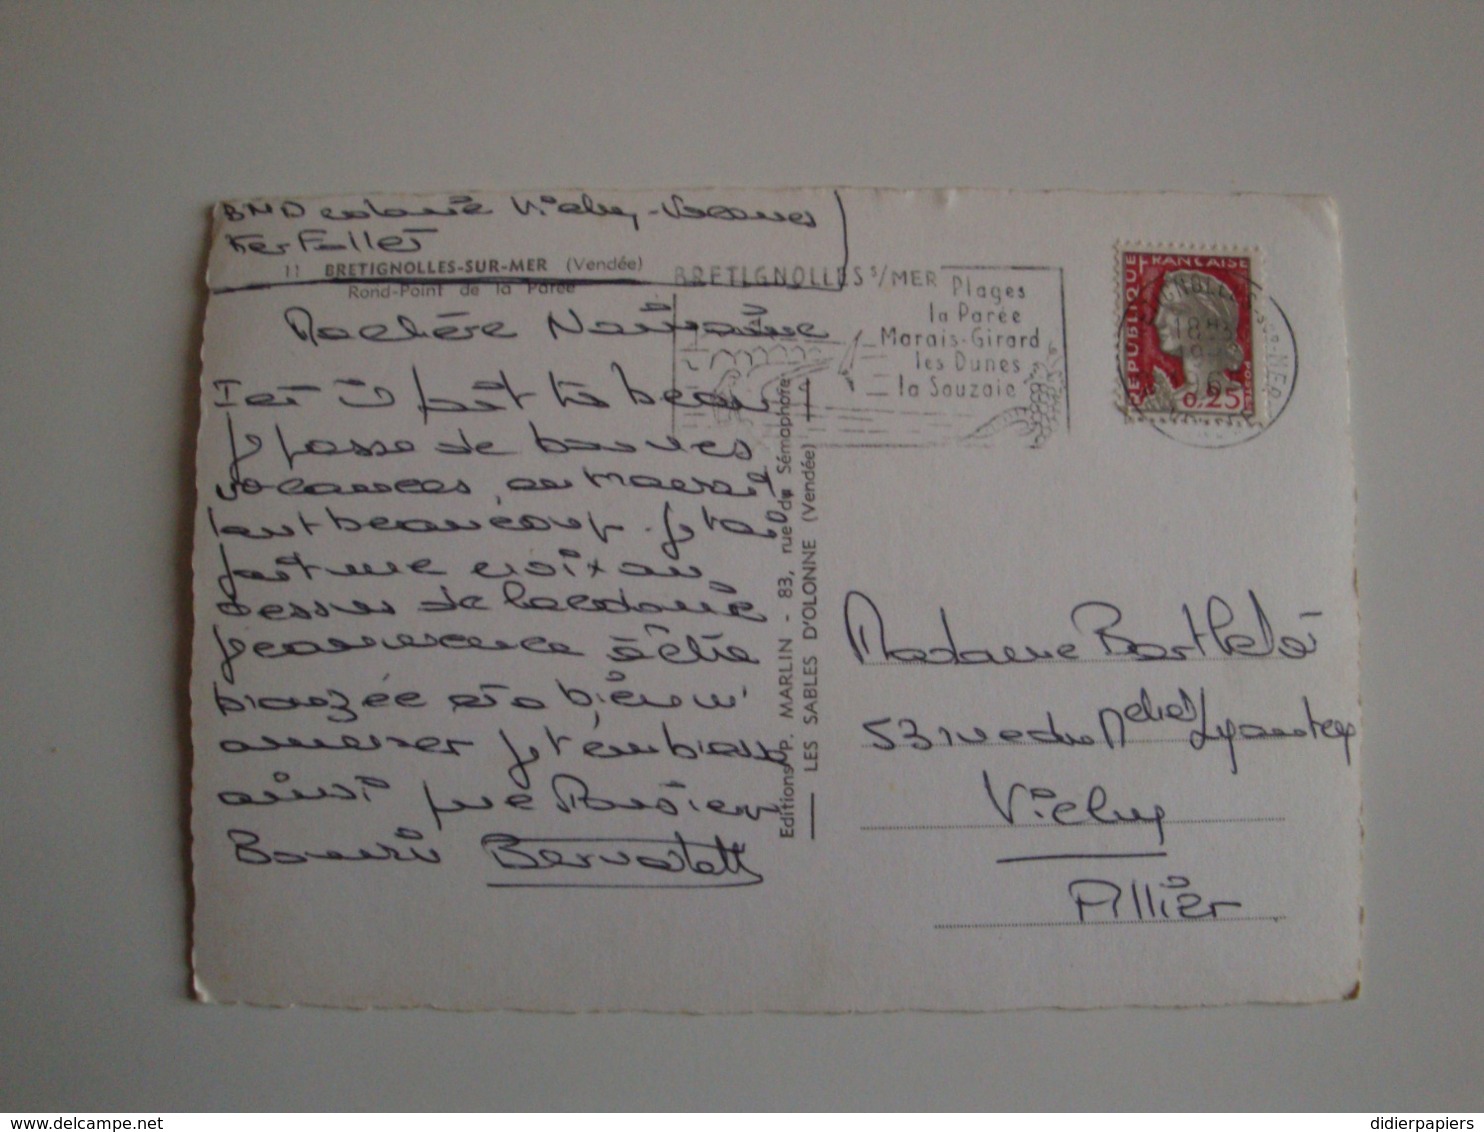 BND colonie Vichy-Vacances
Ker Follet
11 BRETIGNOLLES-SUR-MER (Vendée)
Rond-Point de la Parée
BRETIGNOLLES S/MER
Plages
la Parée
Marais-Girard
les Dunes
la Sauzaie
REPUBLIQUE FRANCAISE
0,25
Ma chère
Ici il fait très beau
je passe de bonnes
vacances, on
beaucoup. je t'ai
fait une croix au
dessus de la colonie
je commence à être
bronzée et a bien m'
amuser je t'embrasse
ainsi que
Bernadette
Editions P. MARLIN - 83, rue du Sémaphore
LES SABLES D'OLONNE (Vendée)
Madame
53 rue du Mchal Lyautey
Vichy
Allier
didierpapiers